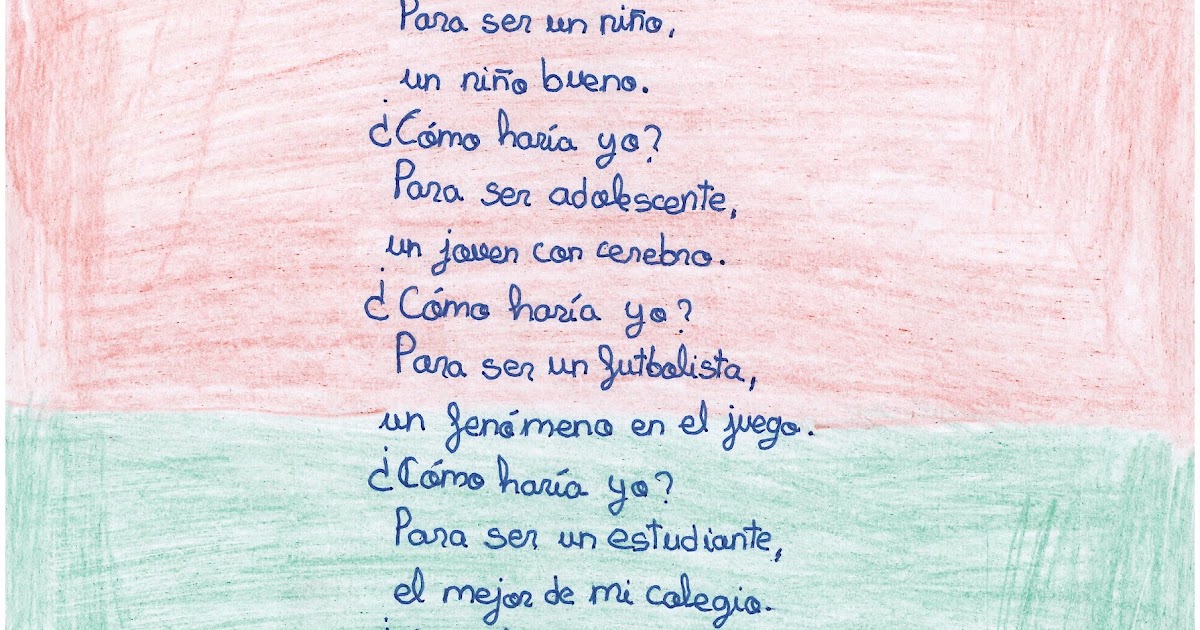 Para ser un niño,
un niño bueno.
¿Cómo haría yo?
Para ser adolescente,
un joven con cerebro.
¿Cómo haría yo?
Para ser un futbolista,
un fenómeno en el juego.
¿Cómo haría yo?
Para ser un estudiante,
el mejor de mi colegio.